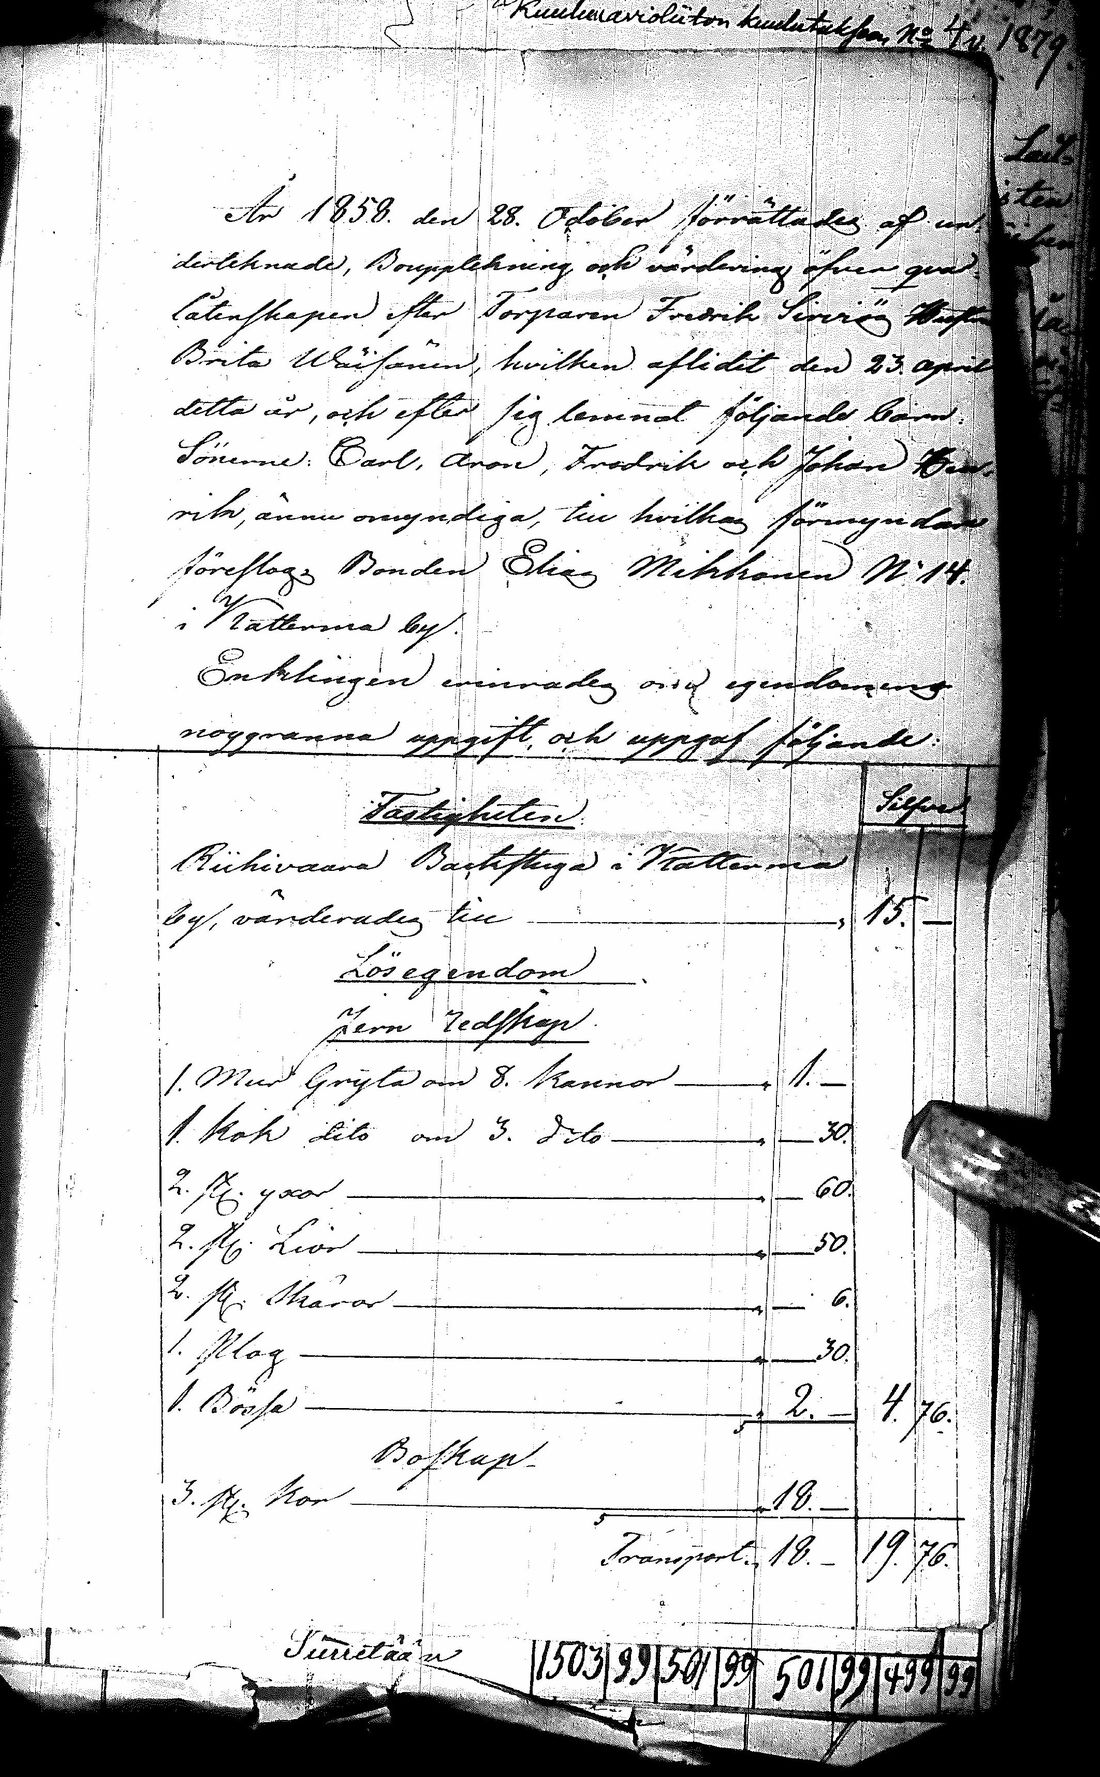 Kuulutuksen No 4 v. 1879.
År 1858. den 28. October förrättades af un-
derteknade, Bouppteknings och värdering öfver qvar-
låtenskapen efter Torparen Fredrik Siviräs Hustru
Brita Wäisänen, hvilken aflidit den 23. april
detta år, och efter sig lemnat följande barn:
Sönerne: Carl, Aron, Fredrik och Johan Hen-
rik, ännu omyndiga, till hvilkas förmyndare
föreslogs Bonden Elias Mikkonen No 14.
i Katterma by.
Enklingen erinrades om egendomens
noggranna uppgift, och uppgaf följande:
Silfver
Fastigheten.
Riihivaara Backstuga i Katterma
by, värderades till 15. —
Lösegendom
Jern redskap.
1. Mur Gryta om 8. kannor " 1. —
1. Kok dito om 3. dito " — 30.
2. st. yxor " — 60.
2. st. Liar " — 50.
2. st. Skäror " — 6.
1. Plog " — 30.
1. Bössa " 2. — 4. 76.
Boskap.
3. st. Kor " 18. —
Transport. 18. — 19. 76.
Siirretään 1503 99 501 99 501 99 499 99